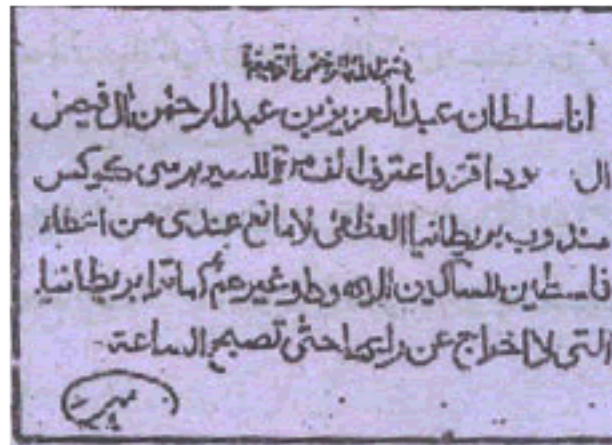 بسم الله الرحمن الرحيم
انا سلطان عبد العزيز بن عبد الرحمن ال فيصل
ال اقر واعترف الف مرة للسير برسى كوكس
مندوب بريطانيا العظمى لا مانع عندى من اعطاء
فلسطين للمساكين اليهود او غيرهم كما ترا بريطانيا
التى لا اخرج عن رايها حتى تصبح الساعة